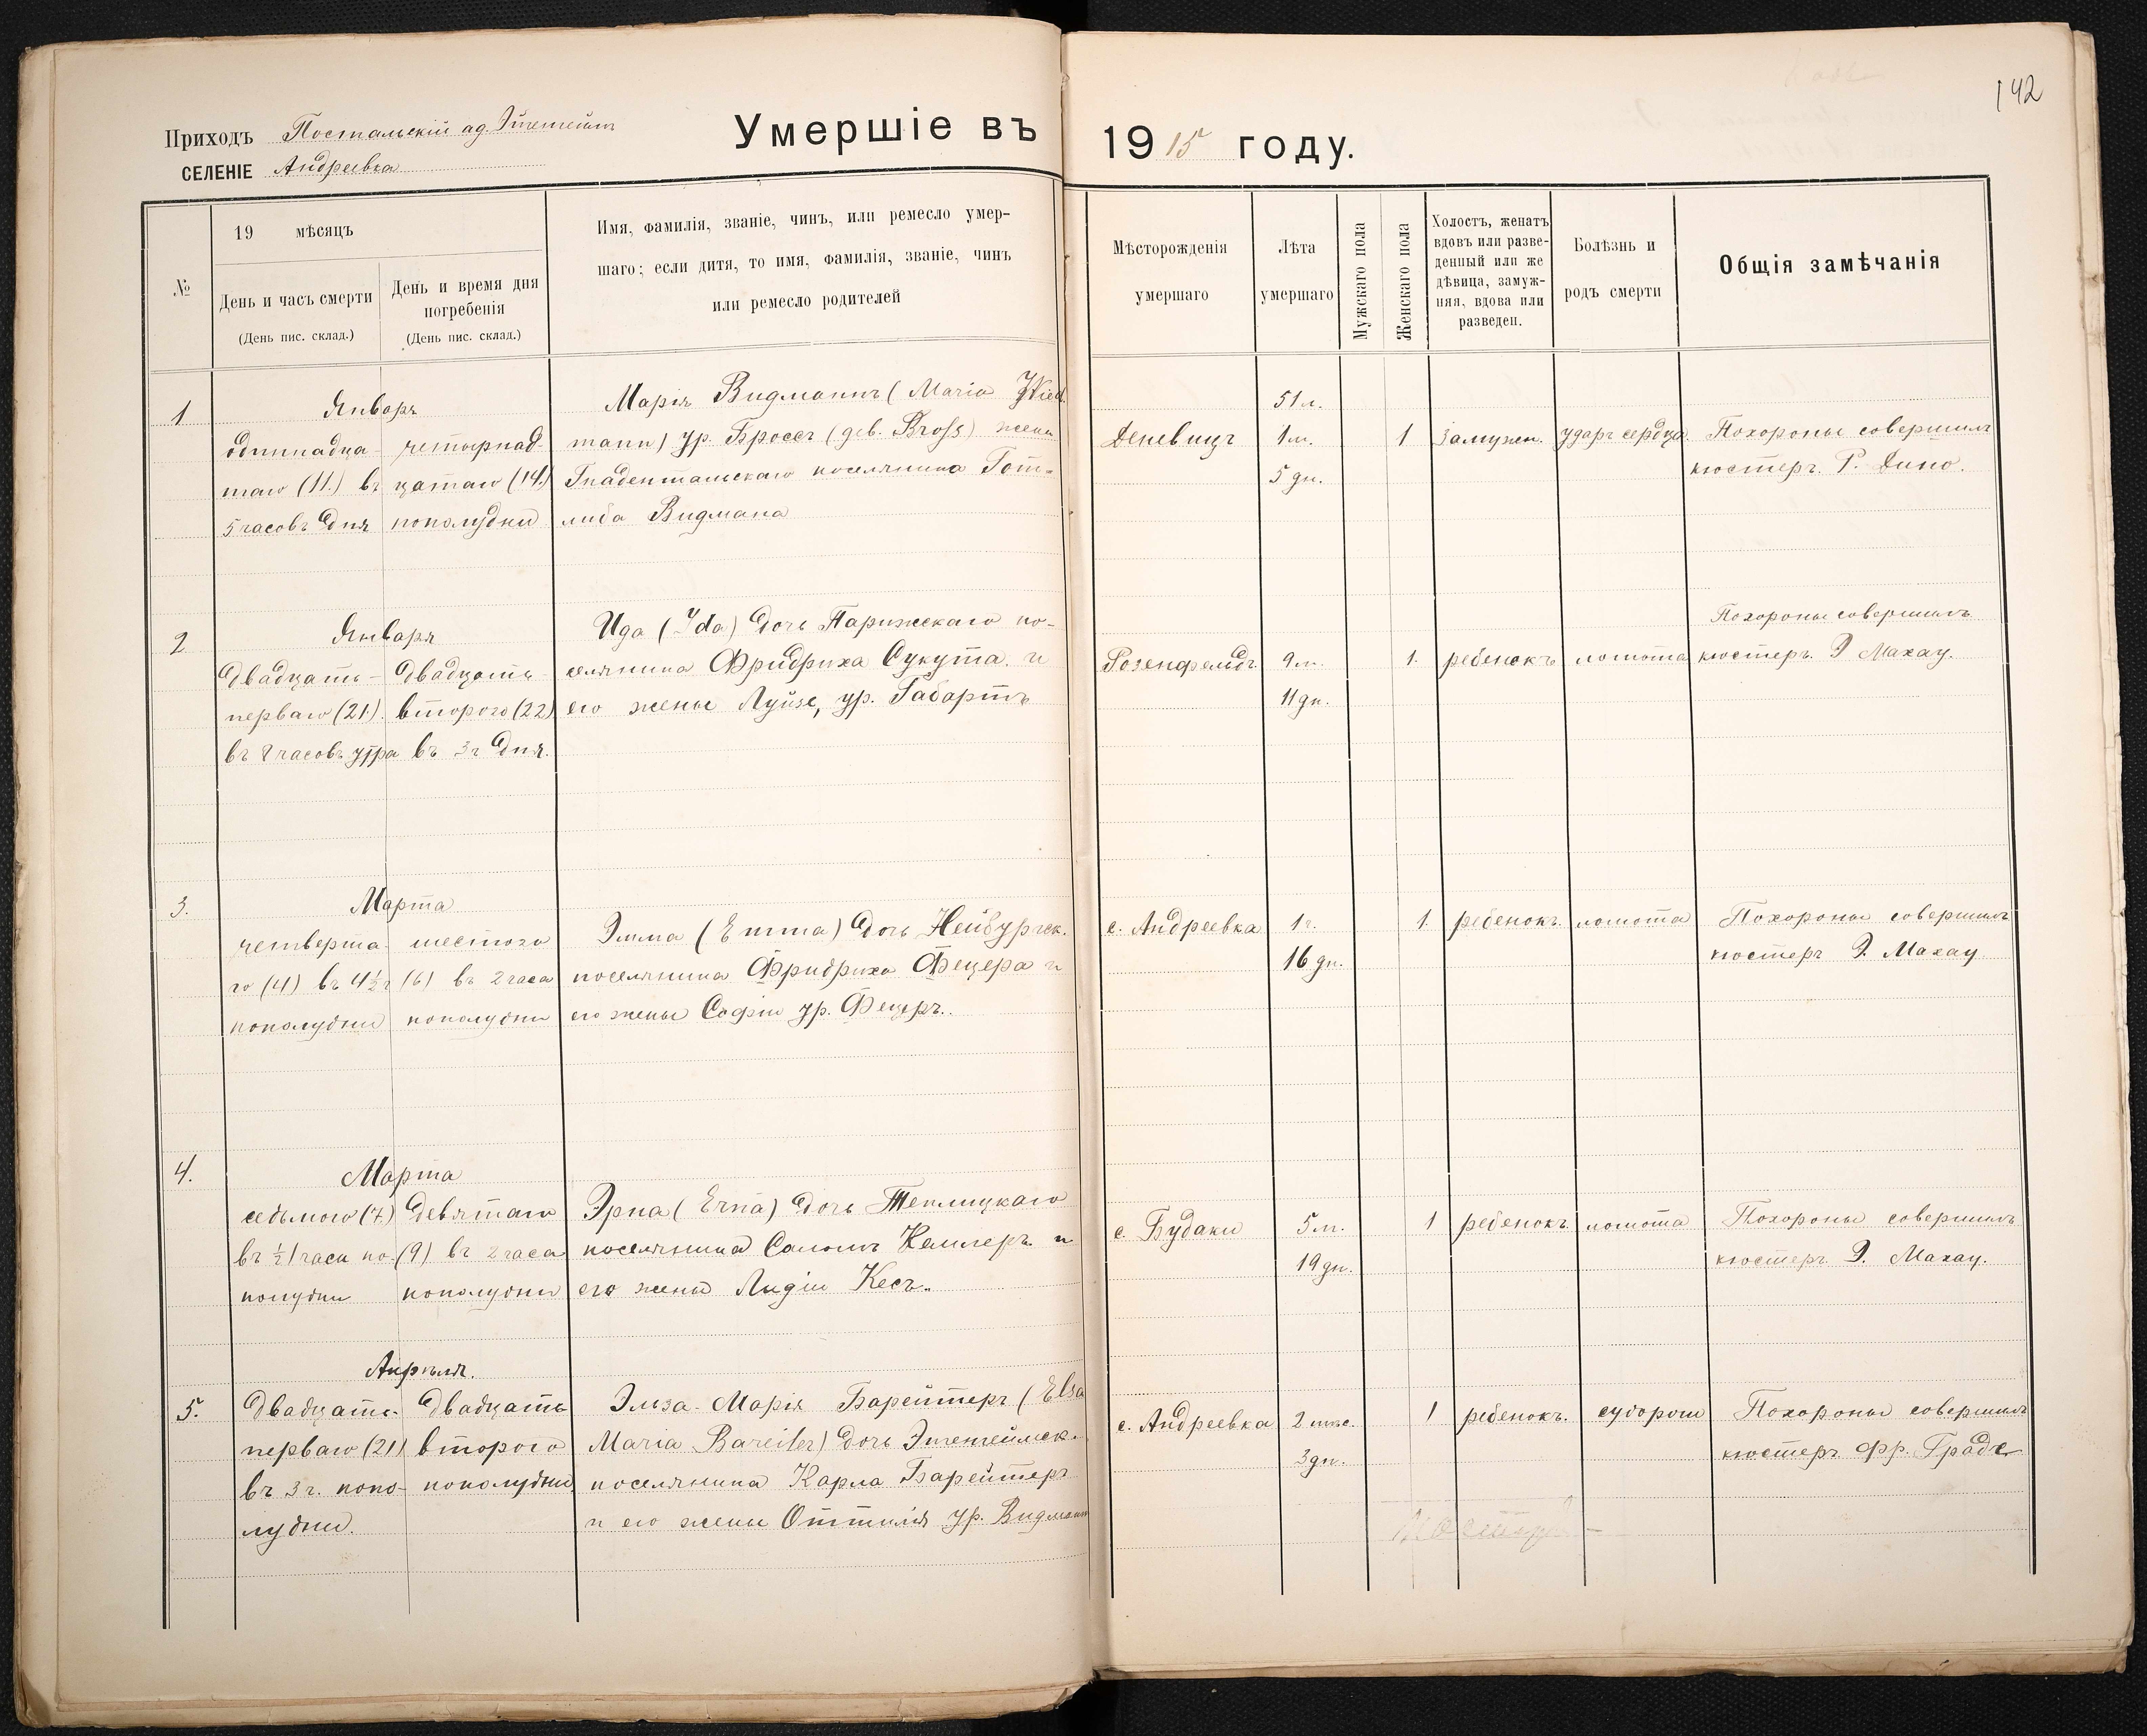 142
Приходъ Постальскій
СЕЛЕНІЕ Андреевка
Умершіе въ 1915 году.
№
19 мѣсяцъ
День и часъ смерти
(День пис. склад.)
День и время дня
погребенія
(День пис. склад.)
Имя, фамилія, званіе, чинъ, или ремесло умер-
шаго; если дитя, то имя, фамилія, званіе, чинъ
или ремесло родителей
Мѣсторожденія
умершаго
Лѣта
умершаго
Мужскаго пола
Женскаго пола
Холостъ, женатъ
вдовъ или разве-
денный или же
дѣвица, замуж-
няя, вдова или
разведен.
Болѣзнь и
родъ смерти
Общія замѣчанія
1
Января
одиннадца-
таго (11.) въ
5 часовъ дня
четырнад-
цатаго (14.)
пополудни
Марія Видманнъ (Maria Wied
mann) ур. Броссъ (geb. Bross) жена
Гнадентальскаго поселянина Гот-
либа Видмана
Деневицъ
51 л.
1 м.
5 дн.
1
замужн.
ударъ сердца
Похороны совершилъ
кюстеръ. Р. Дино.
2
Января
двадцать-
перваго (21).
въ 8 часовъ утра
двадцать
второго (22)
въ 3 ч дня.
Ида (Ida) дочь Парижскаго по-
селянина Фридриха Сукута и
его жены Луизе, ур. Габартъ
Розенфельдъ
9 м.
11 дн.
1.
ребенокъ
ломота
Похороны совершилъ
кюстеръ. Э Махау.
3.
Марта
четверта-
го (4) въ 4½ ч
пополудни
шестого
(6) въ 2 часа
пополудни
Эмма (Emma) дочь Нейбургск.
поселянина Фридриха Фецера и
его жены Софіи ур. Фецеръ.
с. Андреевка
1 г.
16 дн.
1.
ребенокъ.
ломота
Похороны совершилъ
кюстеръ Э. Махау
4.
Марта
седьмого (7)
въ ½ 1 часа по-
полудни
девятаго
(9) въ 2 часа
пополудни
Эрна (Erna) дочь Теплицкаго
поселянина Келлеръ и
его жены Лидіи Кесъ.
с. Будаки
5 м.
19 дн.
1
ребенокъ
ломота
Похороны совершилъ
кюстеръ. Э. Махау.
Апрѣля.
5.
двадцать-
перваго (21)
въ 3 ч. попо-
лудни.
двадцать
второго
пополудни
Эльза-Марія Барейтеръ (Elsa
Maria Bareiter) дочь
поселянина Карла Барейтеръ
и его жены Оттилія ур. Видманнъ
с. Андреевка
2 мѣс.
3 дн.
1
ребенокъ.
судороги
Похороны совершилъ
кюстеръ Фр. Граде